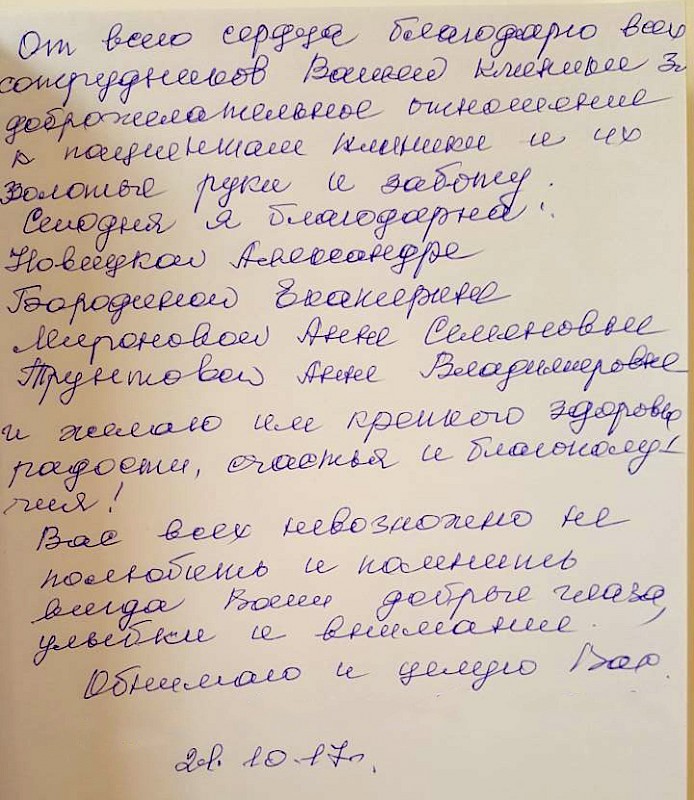 От всего сердца благодарю всех
сотрудников Вашей клиники за
доброжелательное отношение
к пациентам клиники и их
золотые руки и заботу.
Сегодня я благодарна:
Новицкой Александре
Бородиной Екатерине
Мироновой Анне Семеновне
Трунтовой Анне Владимировне
и желаю им крепкого здоровья
радости, счастья и благополу-
чия!
Вас всех невозможно не
полюбить и помнить
всегда Ваши добрые глаза,
улыбки и внимание.
Обнимаю и целую Вас.
21.10.17г.